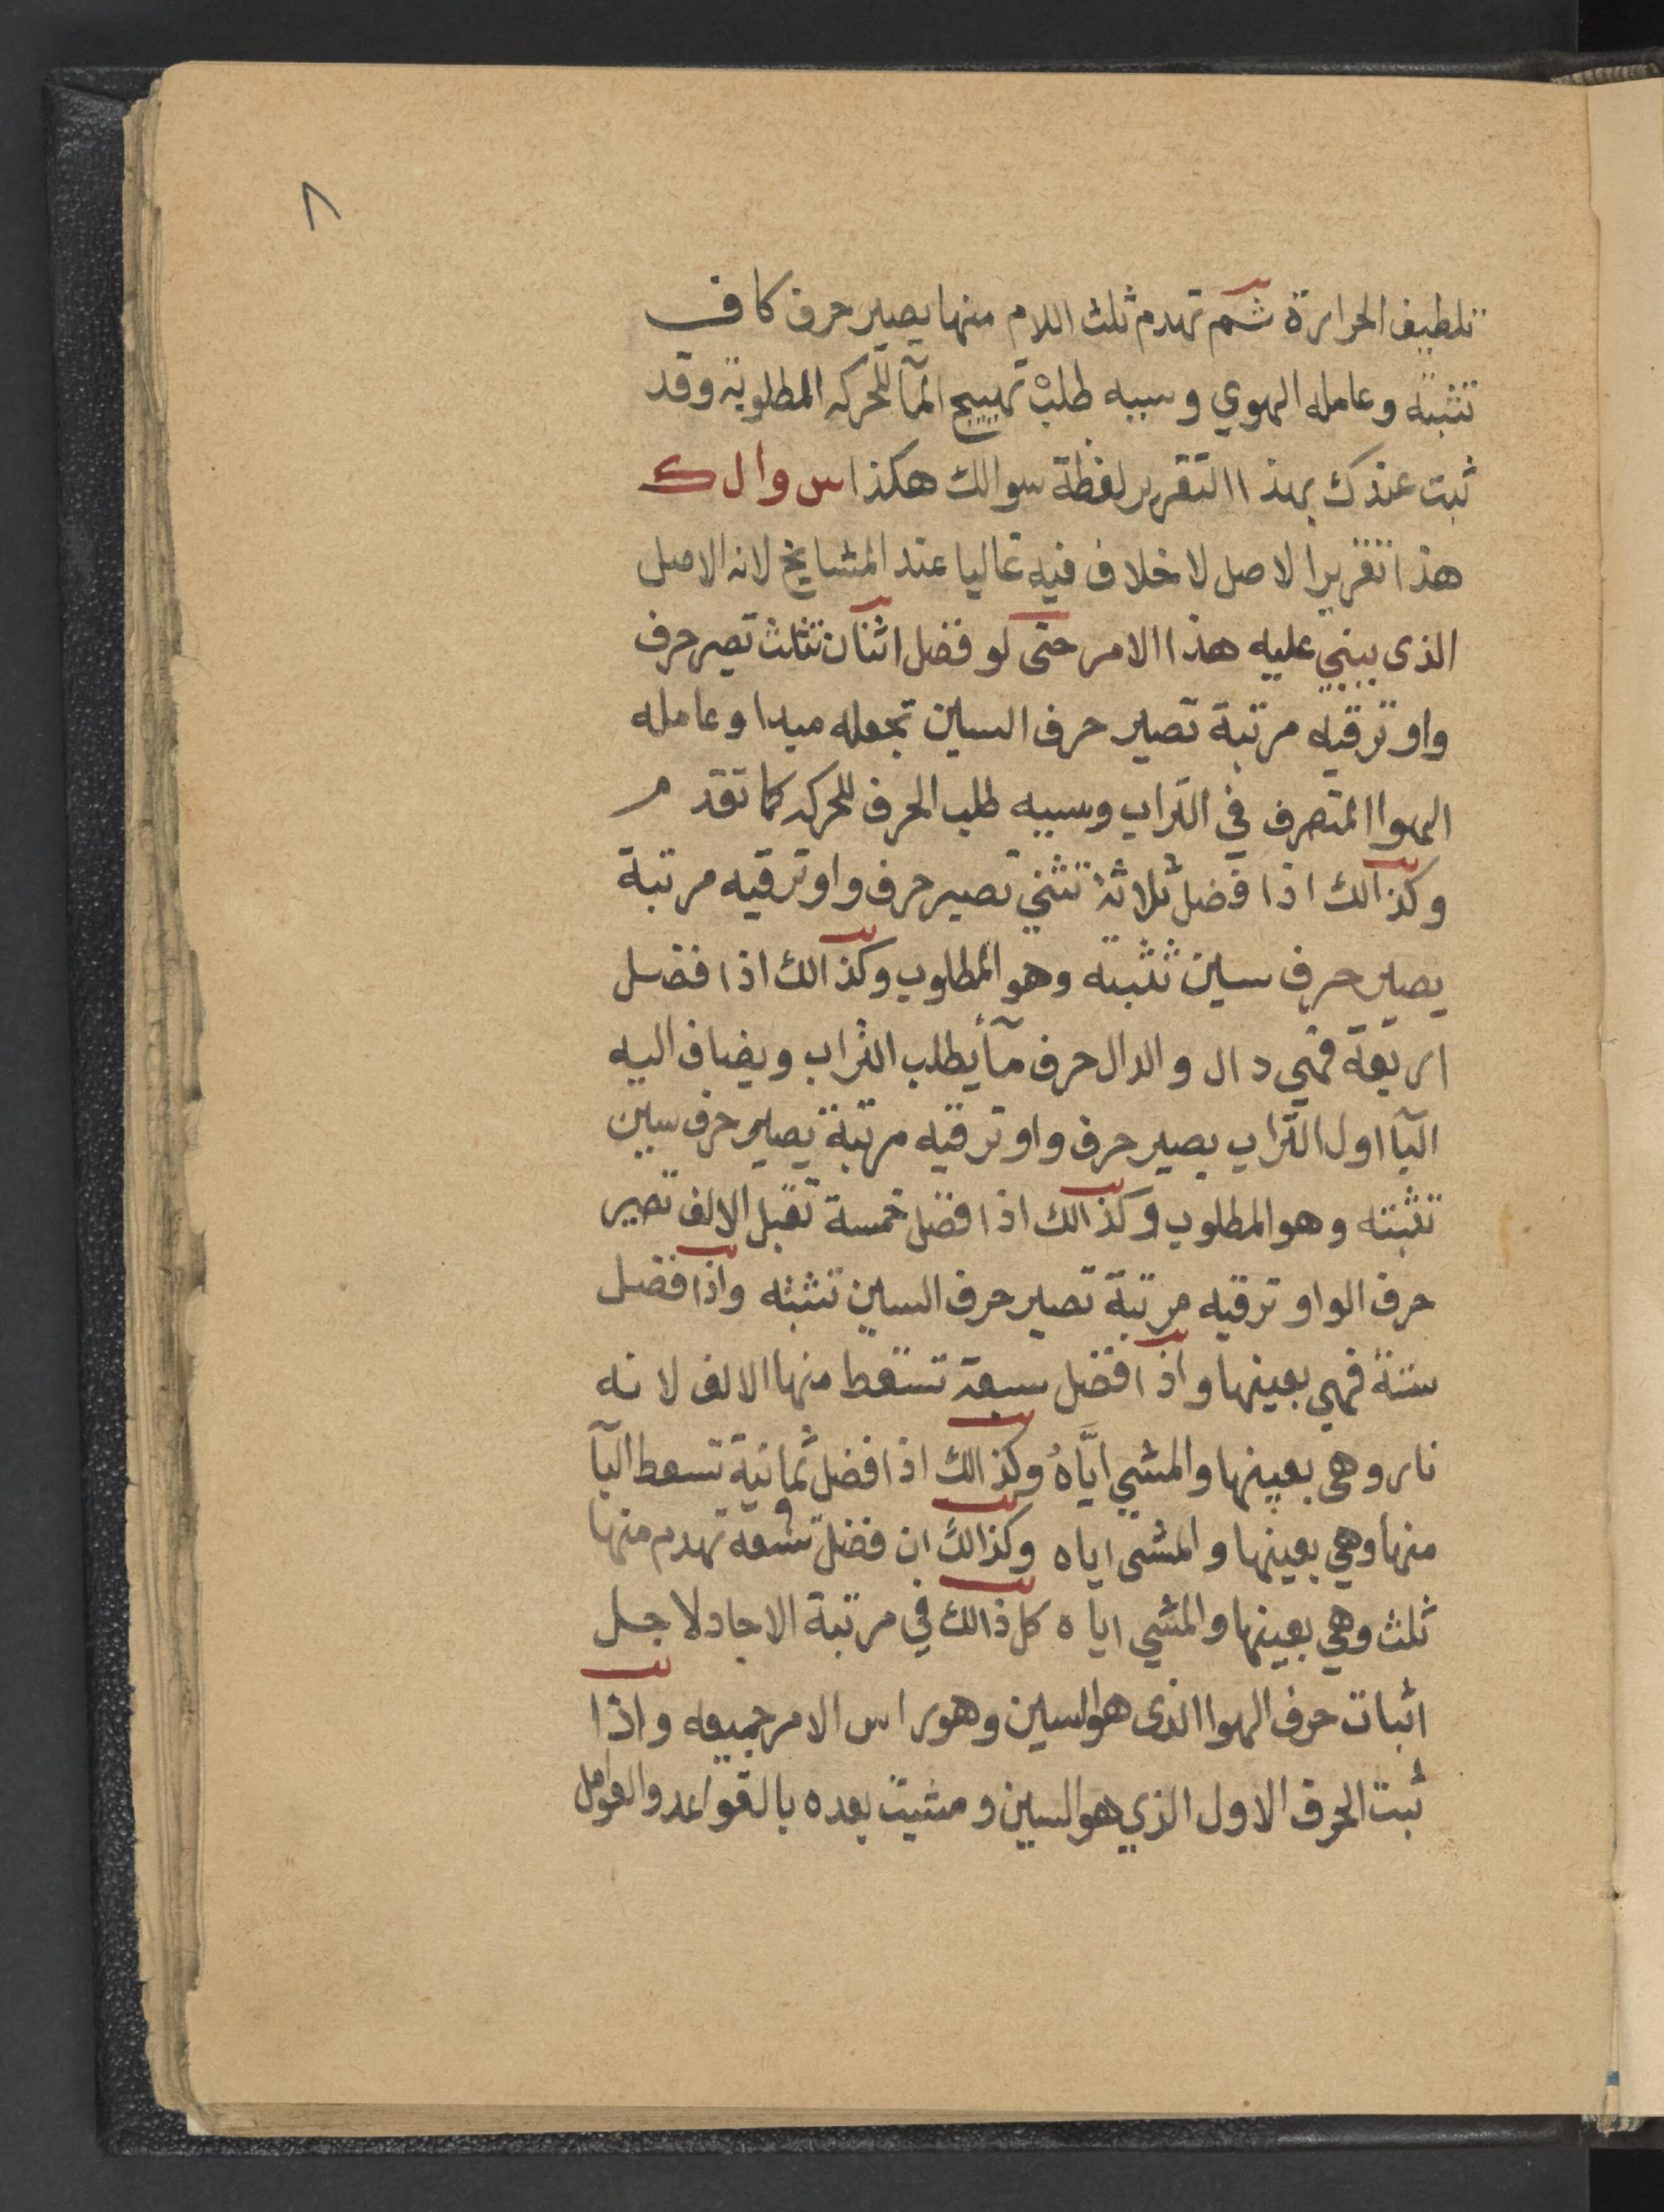 ٨
تلطيف الحرارة ثم تهدم ثلث اللام منها يصير حرف كاف
تثبته وعامله الهوي وسببه طلب تهييج المآ للحركه المطلوبة وقد
ثبت عندك بهذا التقرير لفظة سوالك هكذا س و ا ل ك
هذا تقرير الاصل لا خلاف فيه غاليا عند المشايخ لانه الاصل
الذى يبنى عليه هذا الامر حتى لو فضل اثنان تثلث تصير حرف
واو ترقيه مرتبة تصير حرف السين تجعله مبدا وعامله
الهوا المتصرف في التراب وسببه طلب الحرف للحركه كما تقدم
وكذالك اذا فضل ثلاثة تثني تصير حرف واو ترقيه مرتبة
يصير حرف سين تثبته وهو المطلوب وكذالك اذا فضل
اربعة فهي دال والدال حرف مآ يطلب التراب ويضاف اليه
البا اول التراب يصير حرف واو ترقيه مرتبة يصير حرف سين
تثبته وهو المطلوب وكذالك اذا فضل خمسة تقبل الالف تصير
حرف الواو ترقيه مرتبة تصير حرف السين تثبته واذا فضل
ستة فهي بعينها واذا فضل سبعة تسقط منها الالف لانه
نار وهى بعينها والمشي ايَّاهُ وكذالك اذا فضل ثمانية تسقط البآ
منها وهي بعينها والمشى اياه وكذالك ان فضل تسعة تهدم منها
ثلث وهي بعينها والمشي اياه كل ذالك في مرتبة الاحاد لاجل
اثبات حرف الهوا الذى هو السين وهو راس الامر جميعه واذا
ثبت الحرف الاول الذي هو السين ومشيت بعده بالقواعد والعوامل